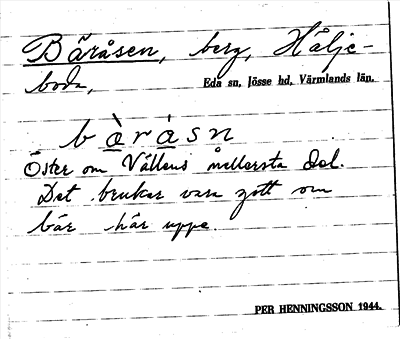 Bäråsen, berg, Hålje-
boda,
Eda sn, Jösse hd, Värmlands län.
b à r á s n
Öster om Vällens mellersta del.
Det brukar vara gott om
bär här uppe.
PER HENNINGSSON 1944.